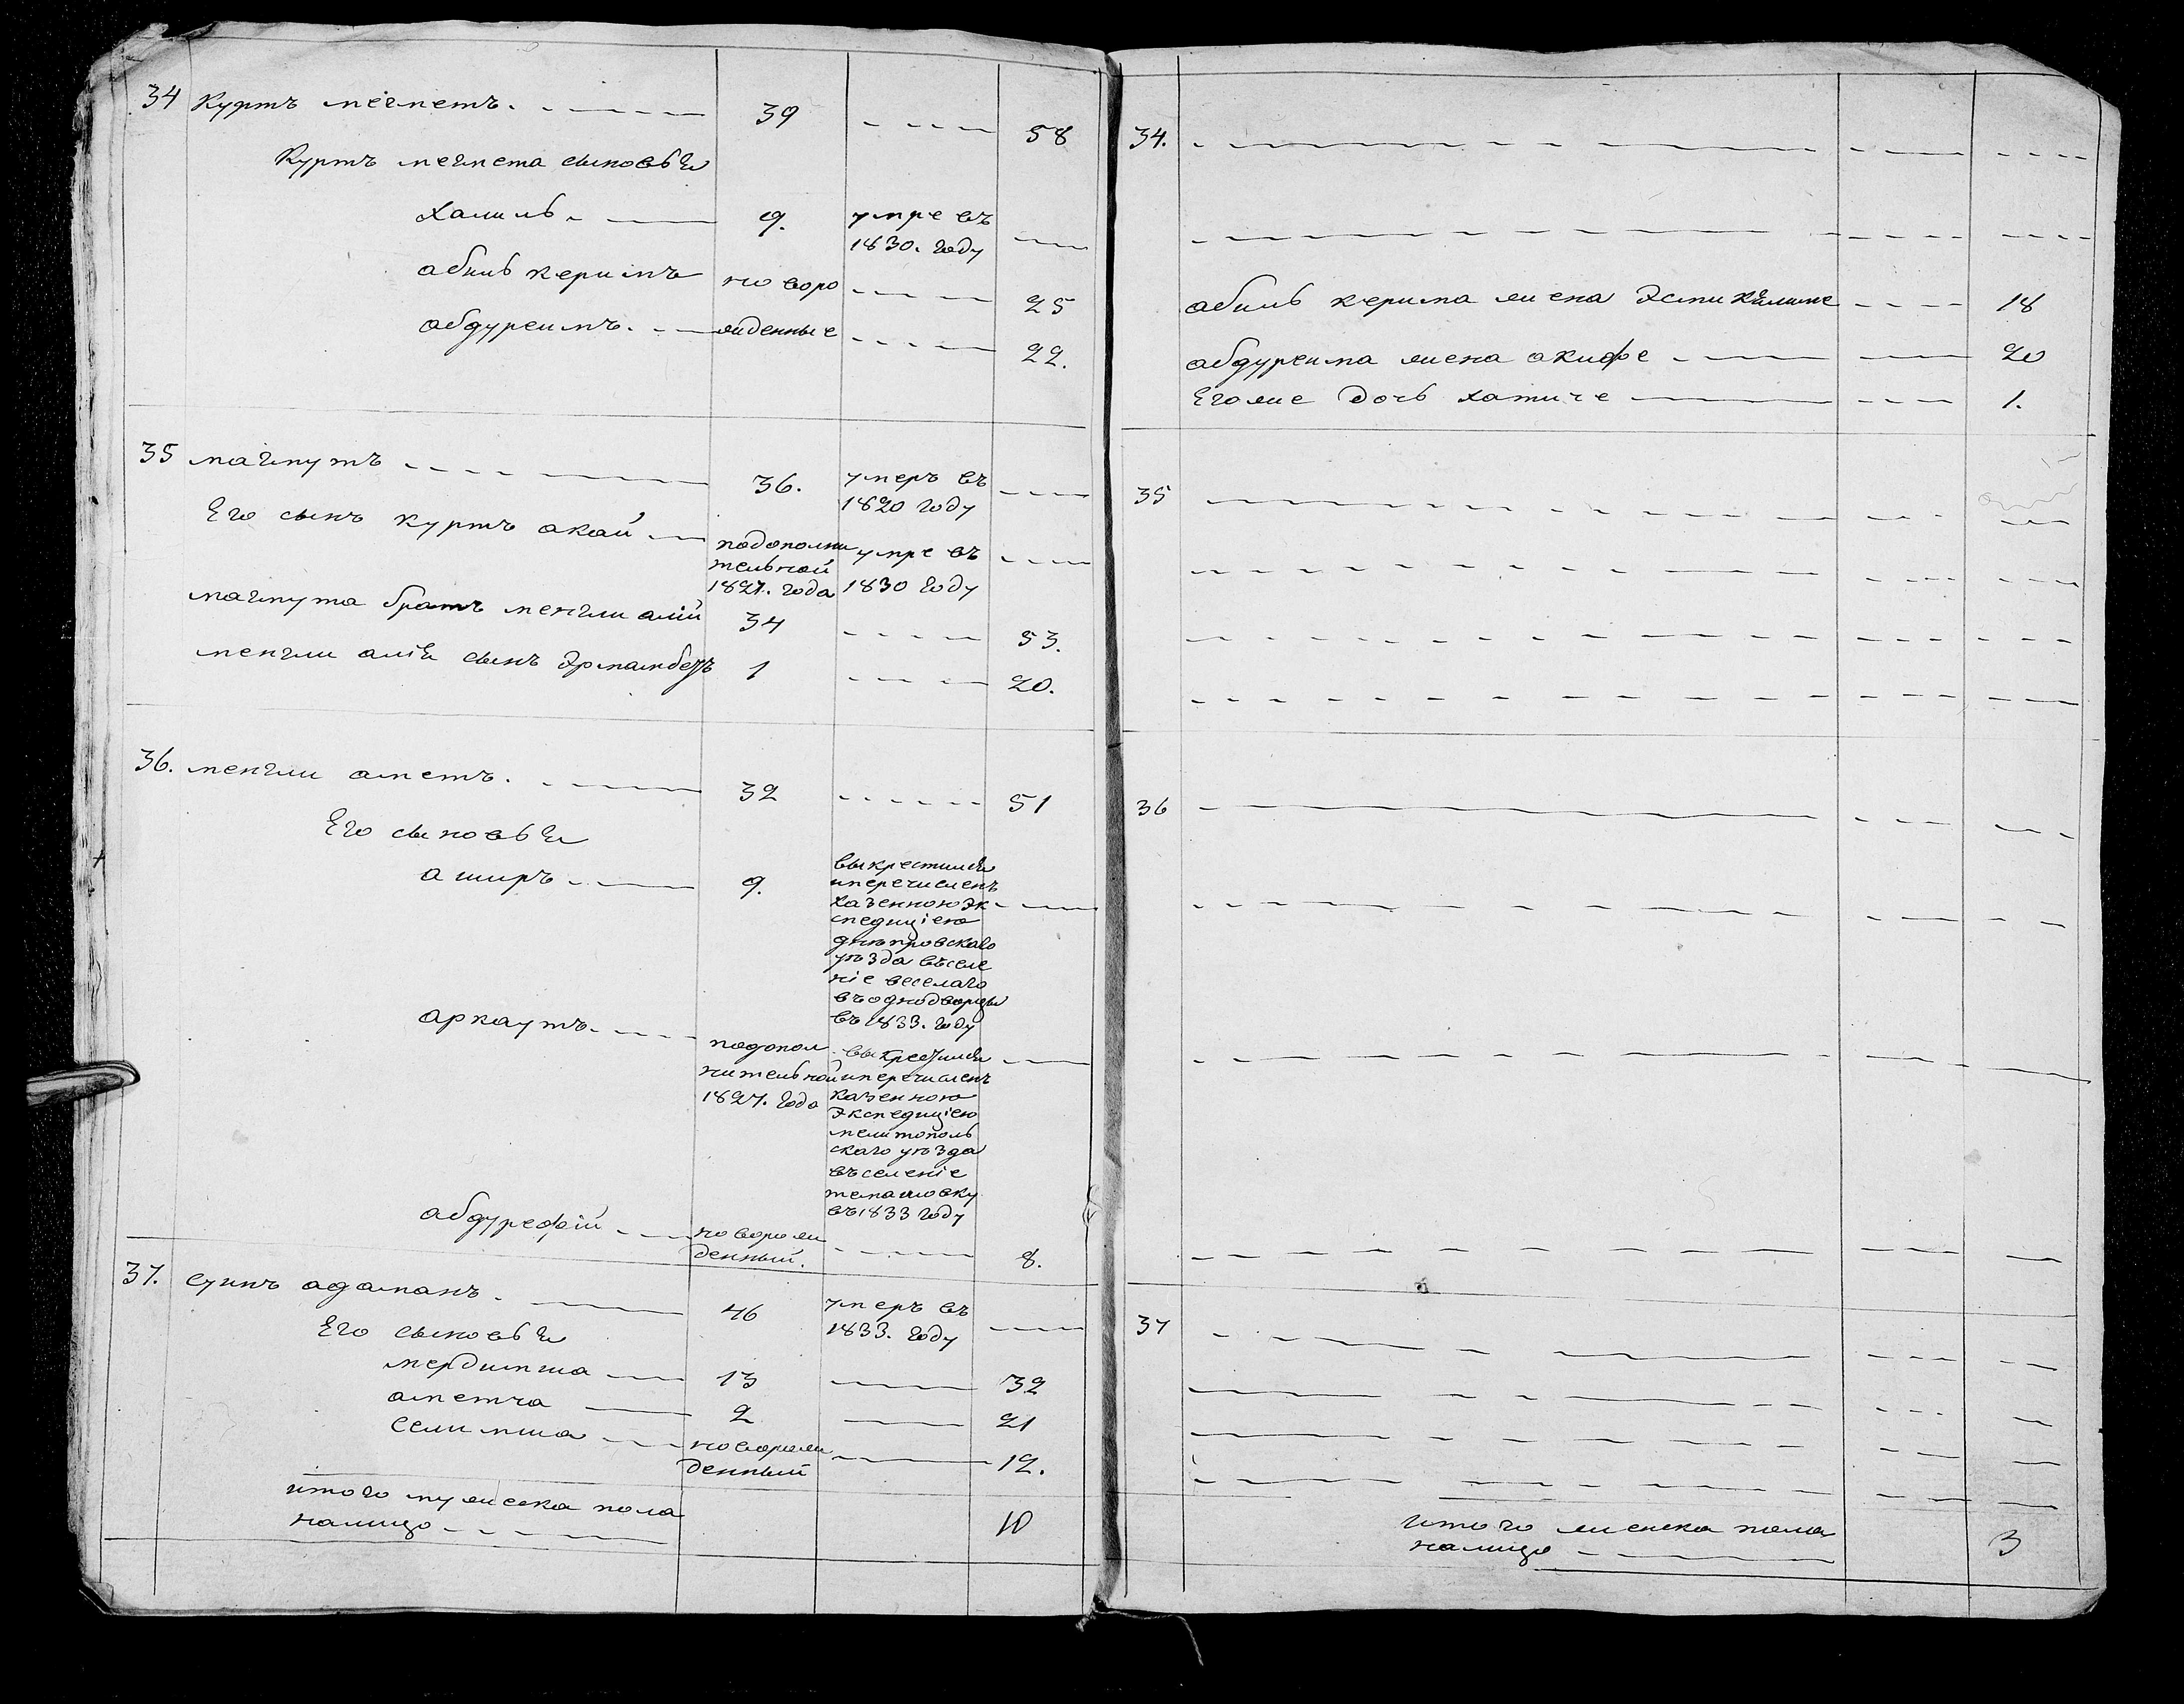 34 Куртъ мегметъ. 39 58
Куртъ мегмета сыновья
Халиль 9. умре въ
1830. году
абиль керимъ новоро 25
абдуреимъ. жденные 22.
35 магмутъ 36. умеръ въ
1820 году
Его сынъ куртъ акай подополни умре въ
тельной
1827. года 1830 году
магмута братъ менгли алій 34 53.
менгли алія сынъ Эрмамбетъ 1 20.
36. менгли аметъ. 32 51
Его сыновья
аширъ 9. выкрестился
иперечисленъ
Казенною Эк
спедиціею
днепровскаго
уезда въселе
ніе веселаго
въоднодворцы
въ 1833. году
аркаутъ подопол выкрестился
нительной иперечисленъ
1827. года казенною
Экспедиціею
мелитополь
скаго уезда
въселеніе
въ 1833 году
абдурефій новорож
денный. 8.
37. адаманъ. 46 умеръ въ
1833. году
Его сыновья
мердимша 13 32
аметча 2 21
селимша новорож
денный 12.
итого мужеска пола
налицо 10
34.
абиль керима жена 18
абдуреима жена акифе 20
Егоже дочь хатиче 1.
35
36
37
итого женска пола
налицо 3